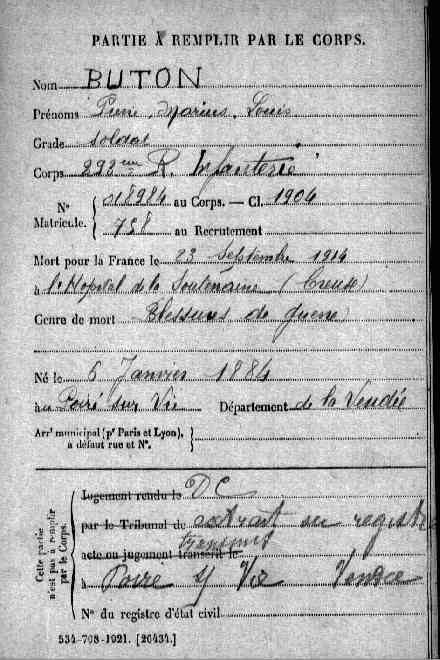 PARTIE À REMPLIR PAR LE CORPS.
Nom BUTON
Prénoms Pierre, Marius, Louis
Grade soldat
Corps 293ème R. Infanterie
N° Matricule. { 018984 au Corps. — Cl. 1904
758 au Recrutement
Mort pour la France le 23 Septembre 1914
à l'Hopital de la Souterraine (Creuse)
Genre de mort Blessures de guerre
Né le 6 Janvier 1884
au Poiré sur Vie Département de la Vendée
Arrt municipal (pr Paris et Lyon), à défaut rue et N°. }
Cette partie n'est pas à remplir par le Corps.
Jugement rendu le DC
par le Tribunal de extrait du registre
transmis
acte ou jugement transcrit le
à Poiré s/ Vie Vendée
N° du registre d'état civil
534-708-1921. [26434.]